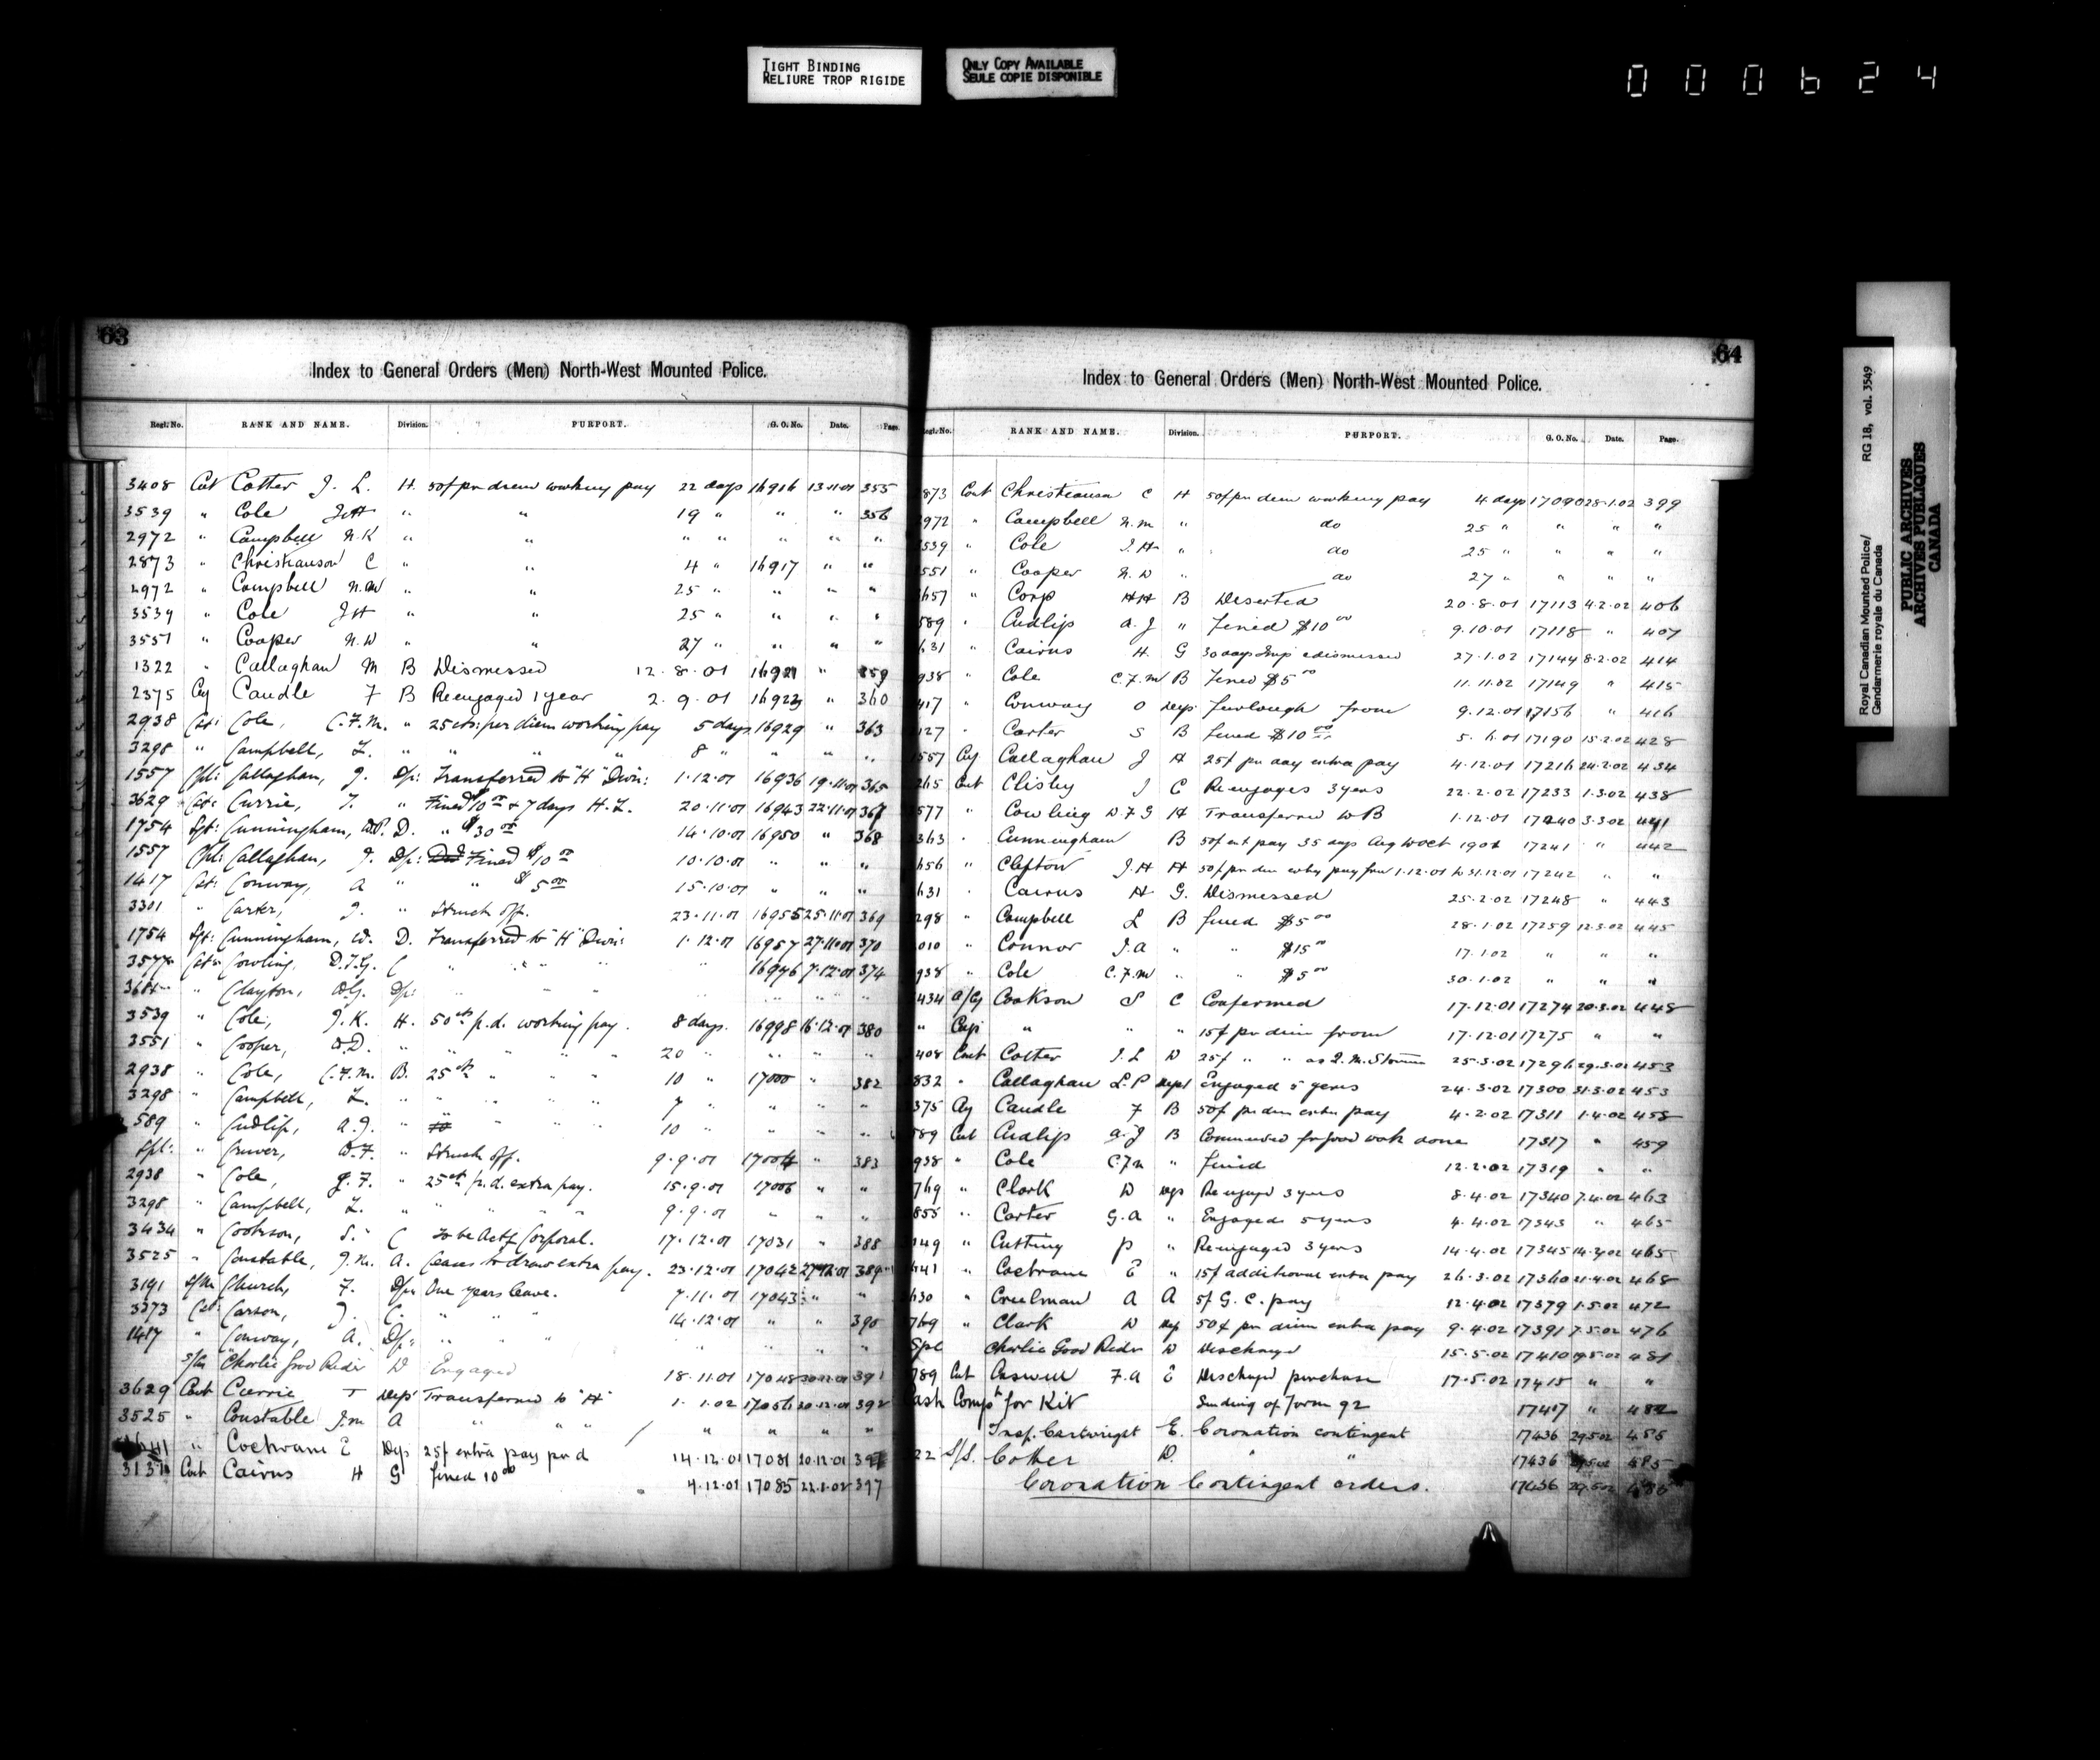 TIGHT BINDING
RELIURE TROP RIGIDE
ONLY COPY AVAILABLE
SEULE COPIE DISPONIBLE
000624
63
Index to General Orders (Men) North-West Mounted Police.
Regl. No. RANK AND NAME. Division. PURPORT. G. O. No. Date. Page.
3408 Cot Cotter J. L. H. 50¢ per diem working pay 22 days 16916 13·11·01 355
3539 " Cole J H " " 19 " " " 356
2972 " Campbell N. K " " " " " " "
2873 " Christianson C " " 4 " 16917 " "
2972 " Campbell N. M " " 25 " " " "
3539 " Cole J H " " 25 " " " "
3551 " Cooper N. D " " 27 " " " "
1322 " Callaghan M B Dismissed 12·8·01 16921 " 359
2375 Cy Caudle F B Reengaged 1 year 2·9·01 16923 " 360
2938 Cst: Cole, C. F. M. " 25 cts: per diem working pay 5 days 16929 " 363
3298 " Campbell, L. " " " " 8 " " " "
1557 Cpl: Callaghan, J. Dp: Transferred to "H" Divn: 1·12·01 16936 19·11·01 365
3629 Cst: Currie, T. " Fined $10 00 & 7 days H. L. 20·11·01 16943 22·11·01 367
1754 Sgt: Cunningham, W. D. " $30 00 14·10·01 16950 " 368
1557 Cpl: Callaghan, J. Dp: Fined $10 00 10·10·01 " " "
1417 Cst: Conway, A " " $5 00 15·10·01 " " "
3301 " Carter, J. " Struck off. 23·11·01 16955 25·11·01 369
1754 Sgt: Cunningham, W. D. Transferred to "H" Divn: 1·12·01 16957 27·11·01 370
3577 Cst: Cowling, D. F. G. C " " " " 16976 7·12·01 374
" Clayton, W. G. Dp: " " " " " " "
3539 " Cole, J. K. H. 50 cts p. d. working pay. 8 days. 16998 16·12·01 380
3551 " Cooper, W. D. " " " " " 20 " " " "
2938 " Cole, C. F. M. B. 25 cts " " " 10 " 17000 " 382
3298 " Campbell, L. " " " " " 7 " " " "
589 " Cudlip, A. J. " " " " 10 " " " "
Spl: " Cruver, W. F. " Struck off. 9·9·01 17004 " 383
2938 " Cole, J. F. " 25 cts p. d. extra pay. 15·9·01 17006 " "
3298 " Campbell, L. " " " " " 9·9·01 " " "
3434 " Cookson, S. C To be Actg Corporal. 17·12·01 17031 " 388
3525 " Constable, J. M. A. Ceases to draw extra pay. 23·12·01 17042 27·12·01 389
3191 S/M Church, F. Dp: One years leave. 7·11·01 17043 " "
3373 Cst: Carson, J. C. " " " 14·12·01 " " 390
1417 " Conway, A. Dp: " " " " " " "
S/Cn Charlie Good Rider D Engaged 18·11·01 17048 391
3629 Cont Currie T Dep't Transferred to "H" 1·1·02 17056 30·12·01 392
3525 " Constable J. M A " " " " " " "
" Cochrane E Dep 25¢ extra pay pr d 14·12·01 17081 20·12·01
Cont Cairns H G fined 10 00 4·12·01 17085 22·1·02 397
64
Index to General Orders (Men) North-West Mounted Police.
Regl. No. RANK AND NAME. Division. PURPORT. G. O. No. Date. Page.
873 Cont Christianson C H 50¢ per diem working pay 4 days 17090 28·1·02 399
2972 " Campbell N. M " do 25 " " " "
3539 " Cole J. H " do 25 " " " "
551 " Cooper N. D " do 27 " " " "
657 " Corp H H B Deserted 20·8·01 17113 4·2·02 406
589 " Cudlip A. J " Fined $10 00 9·10·01 17118 " 407
631 " Cairns H. G 30 days Imp & dismissed 27·1·02 17144 8·2·02 414
938 " Cole C. F. M B Fined $5 00 11·11·02 17149 " 415
417 " Conway O Dept furlough from 9·12·01 17156 " 416
127 " Carter S B fined $10 00 5·6·01 17190 15·2·02 428
1557 Cy Callaghan J H 25¢ per day extra pay 4·12·01 17216 24·2·02 434
265 Cont Clisby J C Reengages 3 years 22·2·02 17233 1·3·02 438
577 " Cowling D. F G H Transferred to B 1·12·01 17240 3·3·02 441
363 " Cunningham B 50¢ ext pay 35 days Aug to Oct 1901 17241 " 442
656 " Clifton J. H H 50¢ per diem extra pay from 1·12·01 to 31·12·01 17242 " "
631 " Cairns H G. Dismissed 25·2·02 17248 " 443
298 " Campbell L B fined $5 00 28·1·02 17259 12·3·02 445
010 " Connor J. A " " $15 00 17·1·02 " " "
938 " Cole C. F. M " " $5 00 30·1·02 " " "
434 A/Cy Cookson S C Confirmed 17·12·01 17274 20·3·02 448
" Corp " " " 15¢ per diem from 17·12·01 17275 " "
408 Cont Cotter J. L D 25¢ " " as Q. M. Storeman 25·3·02 17296 29·3·02 453
832 " Callaghan L. P Dept Engaged 5 years 24·3·02 17300 31·3·02 453
375 Cy Caudle F B 50¢ per diem extra pay 4·2·02 17311 1·4·02 458
589 Cont Cudlip A. J B Commended for good work done 17317 " 459
938 " Cole C. F. M " fined 12·2·02 17319 " "
769 " Clark D Dep Re engaged 3 years 8·4·02 17340 7·4·02 463
855 " Carter G. A " Engaged 5 years 4·4·02 17343 " 465
149 " Cutting P " Reengaged 3 years 14·4·02 17345 14·4·02 465
641 " Cochrane E " 15¢ additional extra pay 26·3·02 17360 21·4·02 468
630 " Creelman A A 5¢ G. C. pay 12·4·02 17379 1·5·02 472
769 " Clark D Dep 50¢ per diem extra pay 9·4·02 17391 7·5·02 476
Spc Charlie Good Rider D Discharged 15·5·02 17410 19·5·02 481
789 Cont Caswell F. A E Discharged purchase 17·5·02 17415 " "
Cash Compn for Kit Sending of Form 92 17417 " 482
Insp. Cartwright E. Coronation contingent 17436 29·5·02 485
22 S/S. Cotter D. " " 17436 29·5·02 485
Coronation Contingent orders. 17436 29·5·02 485
Royal Canadian Mounted Police/ RG 18, vol. 3549
Gendarmerie royale du Canada
PUBLIC ARCHIVES
ARCHIVES PUBLIQUES
CANADA